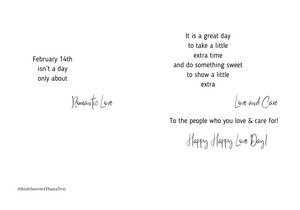 February 14th
isn't a day
only about
Romantic Love
It is a great day
to take a little
extra time
and do something sweet
to show a little
extra
Love and Care
To the people who you love & care for!
Happy Happy Love Day!